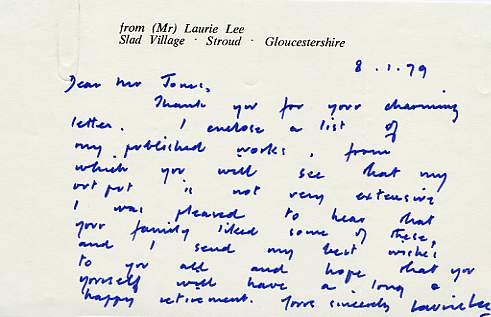 from (Mr) Laurie Lee
Slad Village · Stroud · Gloucestershire
8.1.79
Dear Mr Jones,
Thank you for your charming
letter. I enclose a list of
my published works, from
which you will see that my
output is not very extensive
I was pleased to hear that
your family liked some of these,
and I send my best wishes
to you all and hope that you
yourself will have a long &
happy retirement. Yours sincerely Laurie Lee